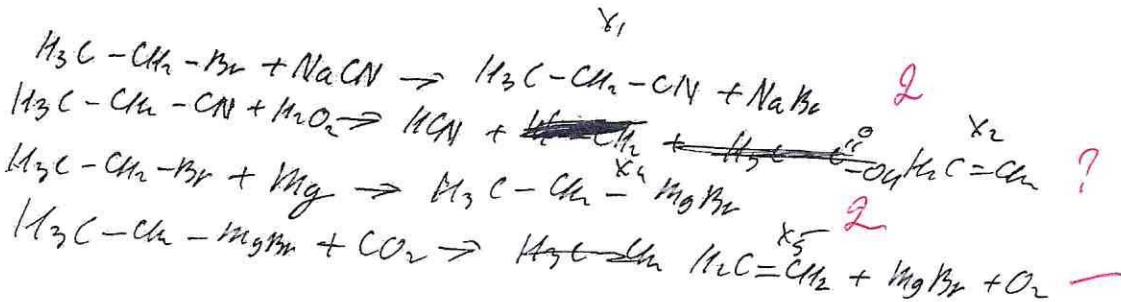 X1
H3C-CH2-Br + NaCN → H3C-CH2-CN + NaBr 2
H3C-CH2-CN + H2O2 → HCN + H2C=CH2 X2 ?
H3C-CH2-Br + Mg → H3C-CH2-MgBr X4 2
H3C-CH2-MgBr + CO2 → H2C=CH2 + MgBr + O2 X5 —